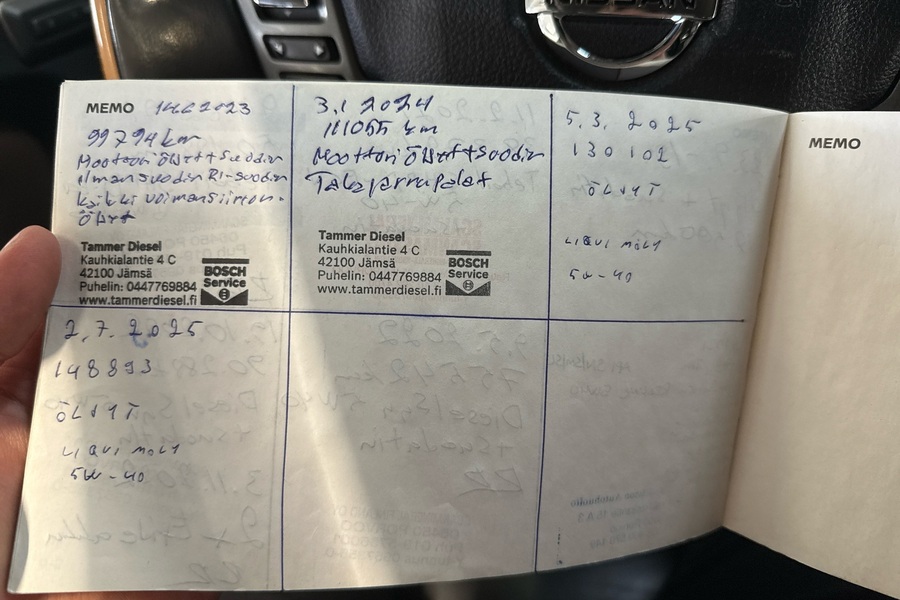 NISSAN
MEMO 14.6 2023
99794 km
Moottori Öljyt + Suodin
ilmansuodin RI-suodin
kaikki voimansiirron-
öljyt
Tammer Diesel
Kauhkialantie 4 C
42100 Jämsä
Puhelin: 0447769884
www.tammerdiesel.fi
BOSCH
Service
3.1 2024
111055 km
Moottori Öljyt + Suodin
Takajarrupalat
Tammer Diesel
Kauhkialantie 4 C
42100 Jämsä
Puhelin: 0447769884
www.tammerdiesel.fi
BOSCH
Service
5.3. 2025
130 102
ÖLJYT
LIQUI MOLY
5W-40
2.7. 2025
148893
ÖLJYT
LIQUI MOLY
5W-40
MEMO